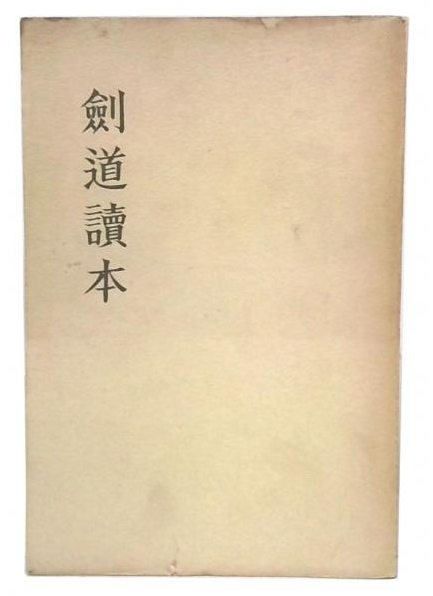 劍道讀本